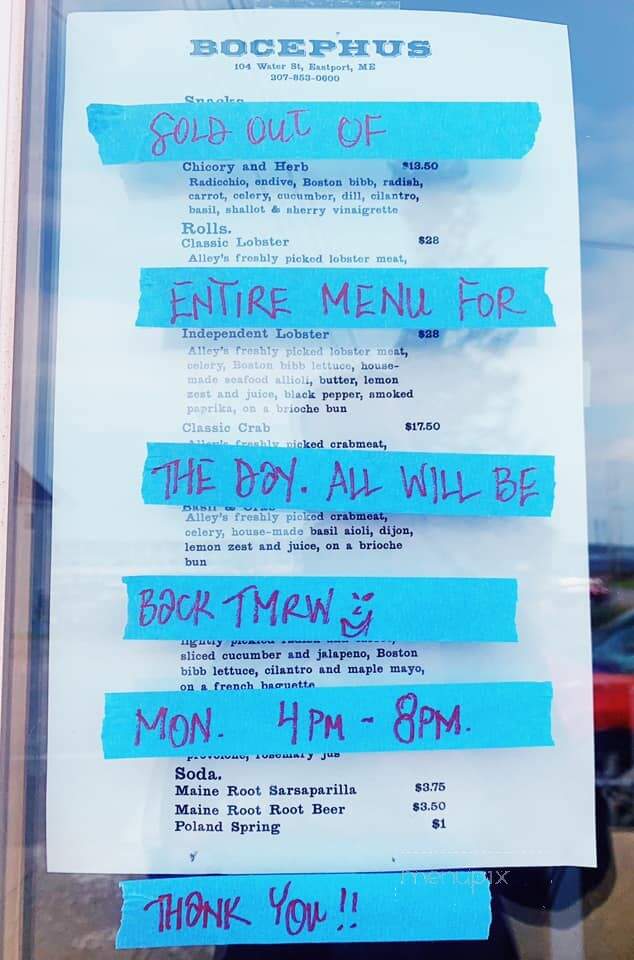 BOCEPHUS
104 Water St, Eastport, ME
207-853-0600
Snacks
SOLD OUT OF
Chicory and Herb $13.50
Radicchio, endive, Boston bibb, radish,
carrot, celery, cucumber, dill, cilantro,
basil, shallot & sherry vinaigrette
Rolls.
Classic Lobster $28
Alley's freshly picked lobster meat,
ENTIRE MENU FOR
Independent Lobster $28
Alley's freshly picked lobster meat,
celery, Boston bibb lettuce, house-
made seafood allioli, butter, lemon
zest and juice, black pepper, smoked
paprika, on a brioche bun
Classic Crab $17.50
Alley's freshly picked crabmeat,
THE DAY. ALL WILL BE
Basil & Crab
Alley's freshly picked crabmeat,
celery, house-made basil aioli, dijon,
lemon zest and juice, on a brioche
bun
BACK TMRW
lightly pickled
sliced cucumber and jalapeno, Boston
bibb lettuce, cilantro and maple mayo,
on a french baguette
MON. 4PM - 8PM.
provolone, rosemary jus
Soda.
Maine Root Sarsaparilla $3.75
Maine Root Root Beer $3.50
Poland Spring $1
menupix
THANK YOU !!